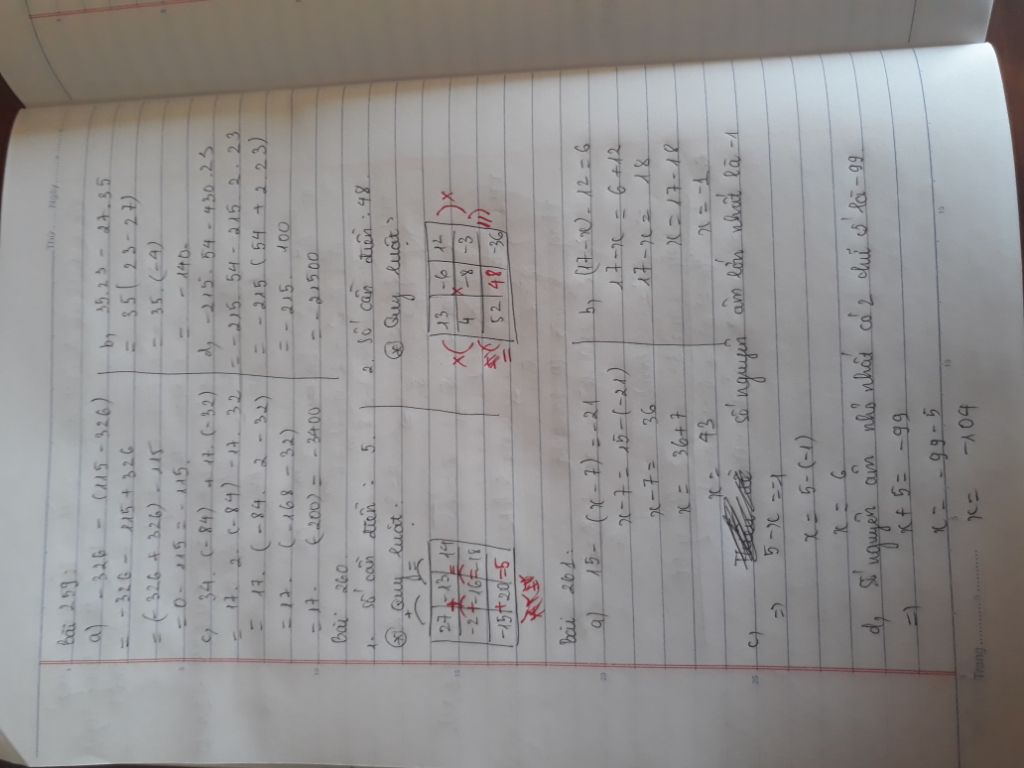 Thứ Ngày
Bài 259:
a) -326 - (115 - 326)
= -326 - 115 + 326
= (326 + 326) - 115
= 0 - 115 = 115
b, 35.23 - 27.35
= 35 (23 - 27)
= 35. (-4)
= -140
c, 34. (-84) + 17. (-32)
= 17. 2 (-84) - 17. 32
= 17. (-84. 2 - 32)
= 17. (-168 - 32)
= 17. (-200) = -3400
d, -215. 54 - 430.23
= -215. 54 - 215. 2. 23
= -215 (54 + 2.23)
= -215. 100
= -21500
Bài 260
1. Số cần điền: 5
* Quy luật:
+ =
27 -13 14
-2 -16 -18
-15 + 20 = 5
2. Số cần điền: 48
* Quy luật:
13 -6 12
4 -8 -3
52 48 -36
Bài 261:
a) 15 - (x - 7) = -21
x - 7 = 15 - (-21)
x - 7 = 36
x = 36 + 7
x = 43
b, (17 - x). 12 = 6
17 - x = 6 + 12
17 - x = 18
x = 17 - 18
x = -1
c, số nguyên âm lớn nhất là -1
=> 5 - x = -1
x = 5 - (-1)
x = 6
d, Số nguyên âm nhỏ nhất có 2 chữ số là -99
=) x + 5 = -99
x = -99 - 5
x = -104
Trang